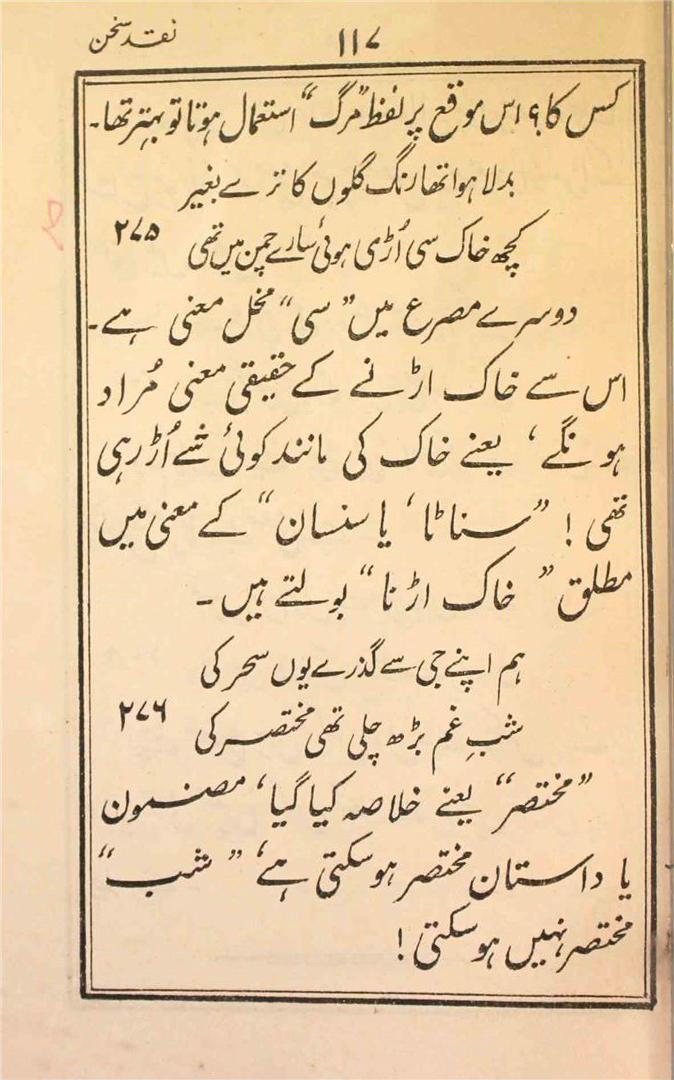 نقد سخن
۱۱۷
کس کا؟ اس موقع پر لفظ "مرگ" استعمال ہوتا تو بہتر تھا۔
بدلا ہوا تھا رنگ گلوں کا ترے بغیر
کچھ خاک سی اُڑی ہوئی سارے چمن میں تھی ۲۷۵
دوسرے مصرع میں "سی" مخل معنی ہے۔
اس سے خاک اڑنے کے حقیقی معنی مُراد
ہونگے، یعنے خاک کی مانند کوئی شے اُڑ رہی
تھی! "سناٹا، یا سنسان" کے معنی میں
مطلق "خاک اڑنا" بولتے ہیں۔
ہم اپنے جی سے گذرے یوں سحر کی
شبِ غم بڑھ چلی تھی مختصر کی ۲۷۶
"مختصر" یعنے خلاصہ کیا گیا، مضمون
یا داستان مختصر ہوسکتی ہے، "شب"
مختصر نہیں ہوسکتی!